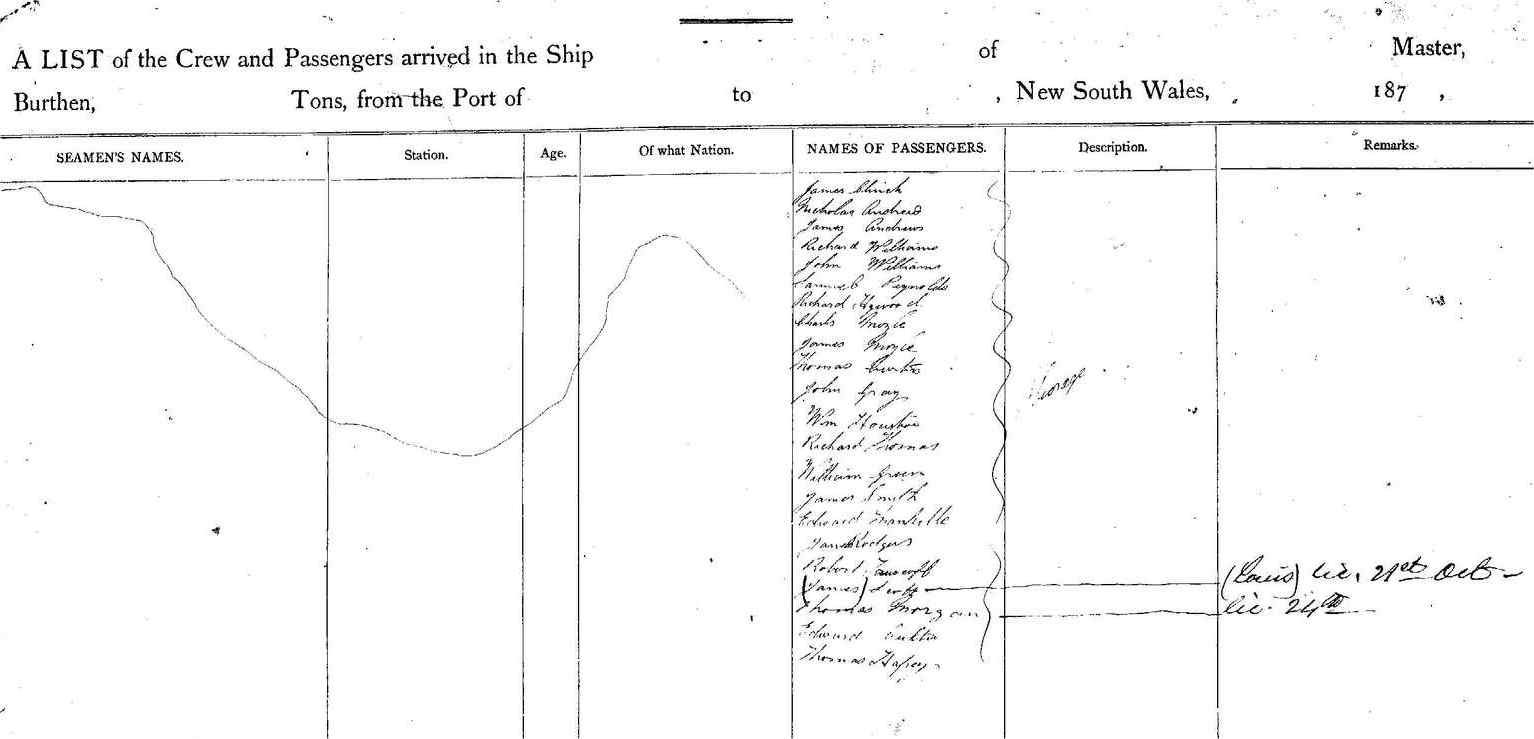 A LIST of the Crew and Passengers arrived in the Ship of Master,
Burthen, Tons, from the Port of to , New South Wales, 187 ,
SEAMEN'S NAMES. Station. Age. Of what Nation. NAMES OF PASSENGERS. Description. Remarks.
James Clinch
Nicholas Andrews
James Andrews
Richard Williams
John Williams
Samuel Reynolds
Richard
Charles
James
Thomas Curtis
John Gray
Wm Houston
Richard Thomas
William Green
James Smith
Edward
Rodgers
Robert
(James) Scott (Louis) lic. 21st Oct
Thomas Morgan lic. 24th
Edward
Thomas